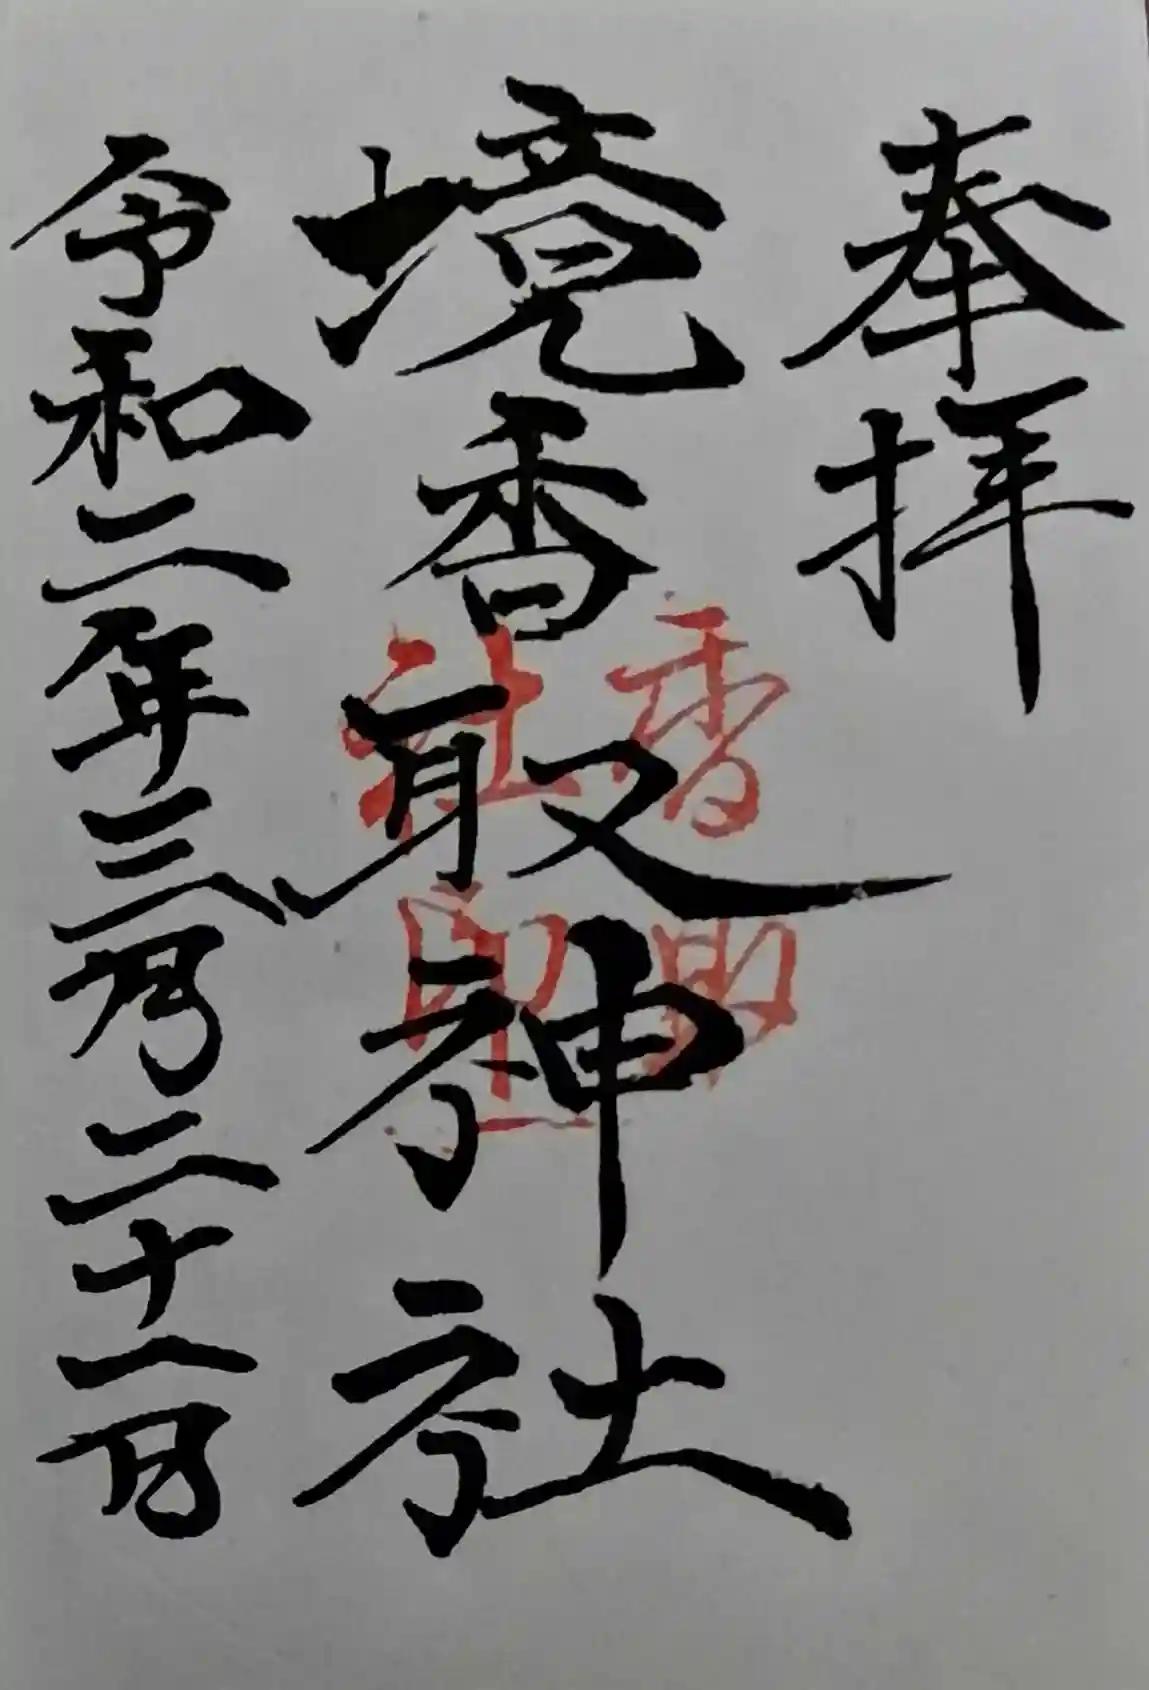 奉拝
境香取神社
令和二年三月二十一日
香取
社印